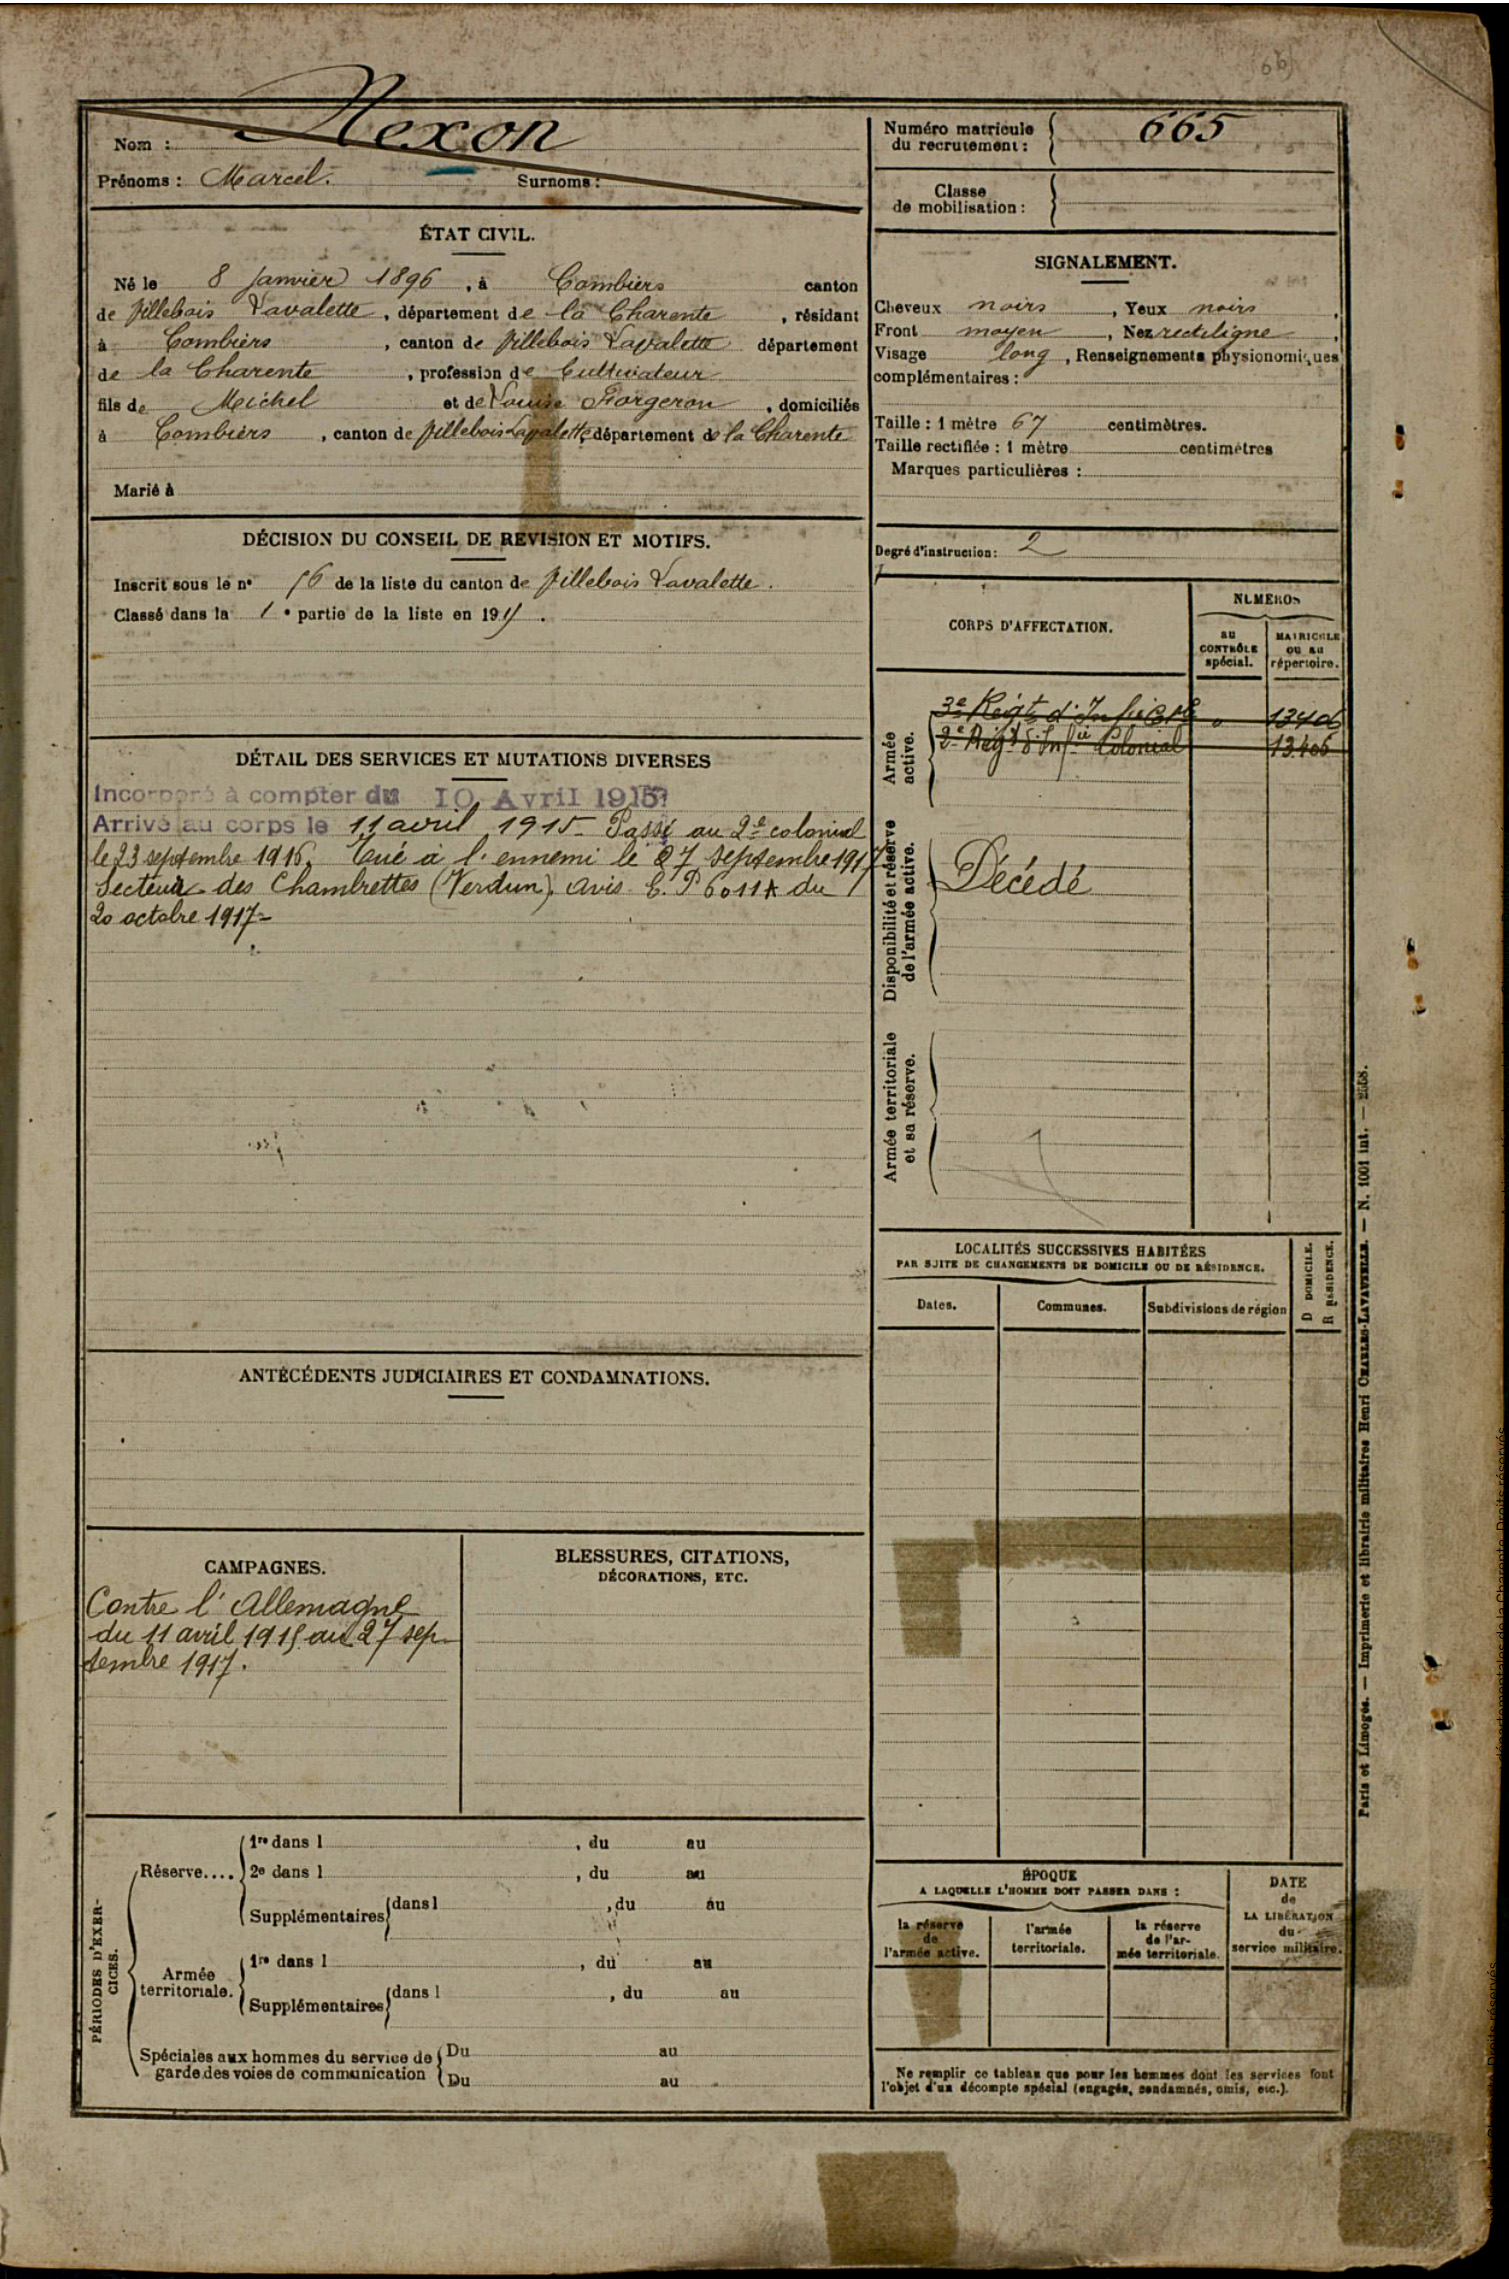 Nom : Nexon
Prénoms : Marcel. Surnoms :
ÉTAT CIVIL.
Né le 8 Janvier 1896, à Combiers canton
de Villebois Lavalette, département de la Charente, résidant
à Combiers, canton de Villebois Lavalette département
de la Charente, profession de Cultivateur
fils de Michel et de Louise Forgeron, domiciliés
à Combiers, canton de Villebois Lavalette département de la Charente
Marié à
DÉCISION DU CONSEIL DE REVISION ET MOTIFS.
Inscrit sous le n° 56 de la liste du canton de Villebois Lavalette.
Classé dans la 1e partie de la liste en 1915.
DÉTAIL DES SERVICES ET MUTATIONS DIVERSES
Incorporé à compter du 10 Avril 1915
Arrivé au corps le 11 avril 1915 - Passé au 2e colonial
le 23 septembre 1916. Tué à l'ennemi le 27 septembre 1917
Secteur des Chambrettes (Verdun). avis C. P 6011A du
20 octobre 1917 -
ANTÉCÉDENTS JUDICIAIRES ET CONDAMNATIONS.
CAMPAGNES.
Contre l'Allemagne
du 11 avril 1915 au 27 sep-
tembre 1917.
BLESSURES, CITATIONS,
DÉCORATIONS, ETC.
PÉRIODES D'EXER-
CICES.
Réserve....
1re dans l , du au
2e dans l , du au
Supplémentaires dans l , du au
Armée
territoriale.
1re dans l , du au
Supplémentaires dans l , du au
Spéciales aux hommes du service de
garde des voies de communication
Du au
Du au
Numéro matricule
du recrutement : 665
Classe
de mobilisation :
SIGNALEMENT.
Cheveux noirs, Yeux noirs,
Front moyen, Nez rectiligne,
Visage long, Renseignements physionomiques
complémentaires :
Taille : 1 mètre 67 centimètres.
Taille rectifiée : 1 mètre centimètres
Marques particulières :
Degré d'instruction : 2
CORPS D'AFFECTATION.
NUMÉROS
au
CONTRÔLE
spécial.
MATRICULE
ou au
répertoire.
Armée
active.
3e Régt d'Infie Cle " 13406
2e Régt d'Infie Colonial 13406
Disponibilité et réserve
de l'armée active.
Décédé
Armée territoriale
et sa réserve.
LOCALITÉS SUCCESSIVES HABITÉES
PAR SUITE DE CHANGEMENTS DE DOMICILE OU DE RÉSIDENCE.
D DOMICILE.
R RÉSIDENCE.
Dates. Communes. Subdivisions de région
ÉPOQUE
A LAQUELLE L'HOMME DOIT PASSER DANS :
la réserve
de
l'armée active.
l'armée
territoriale.
la réserve
de l'ar-
mée territoriale.
DATE
de
LA LIBÉRATION
du
service militaire.
Ne remplir ce tableau que pour les hommes dont les services font
l'objet d'un décompte spécial (engagés, condamnés, omis, etc.).
Paris et Limoges. — Imprimerie et librairie militaires Henri CHARLES-LAVAUZELLE. — N. 1001 int. — 2558.
départementales de la Charente. Droits réservés